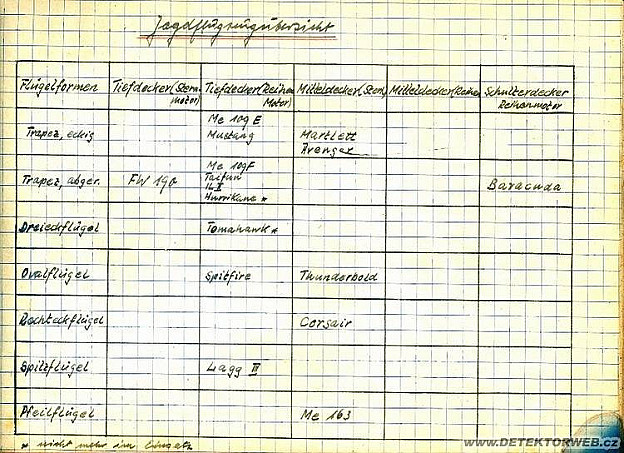 Jagdflugzeugübersicht
Flügelformen Tiefdecker (Stern- motor) Tiefdecker (Reihen Motor) Mitteldecker (Stern) Mitteldecker (Reihen) Schulterdecker Reihenmotor
Trapez, eckig
Me 109 E
Mustang
Martlett
Avenger
Trapez, abger.
FW 190
Me 109F
Taifun
Hurrikane *
Baracuda
Dreieckflügel Tomahawk *
Ovalflügel Spitfire Thunderbold
Rechteckflügel Corsair
Spitzflügel Lagg III
Pfeilflügel Me 163
* nicht mehr im Einsatz
WWW.DETEKTORWEB.CZ